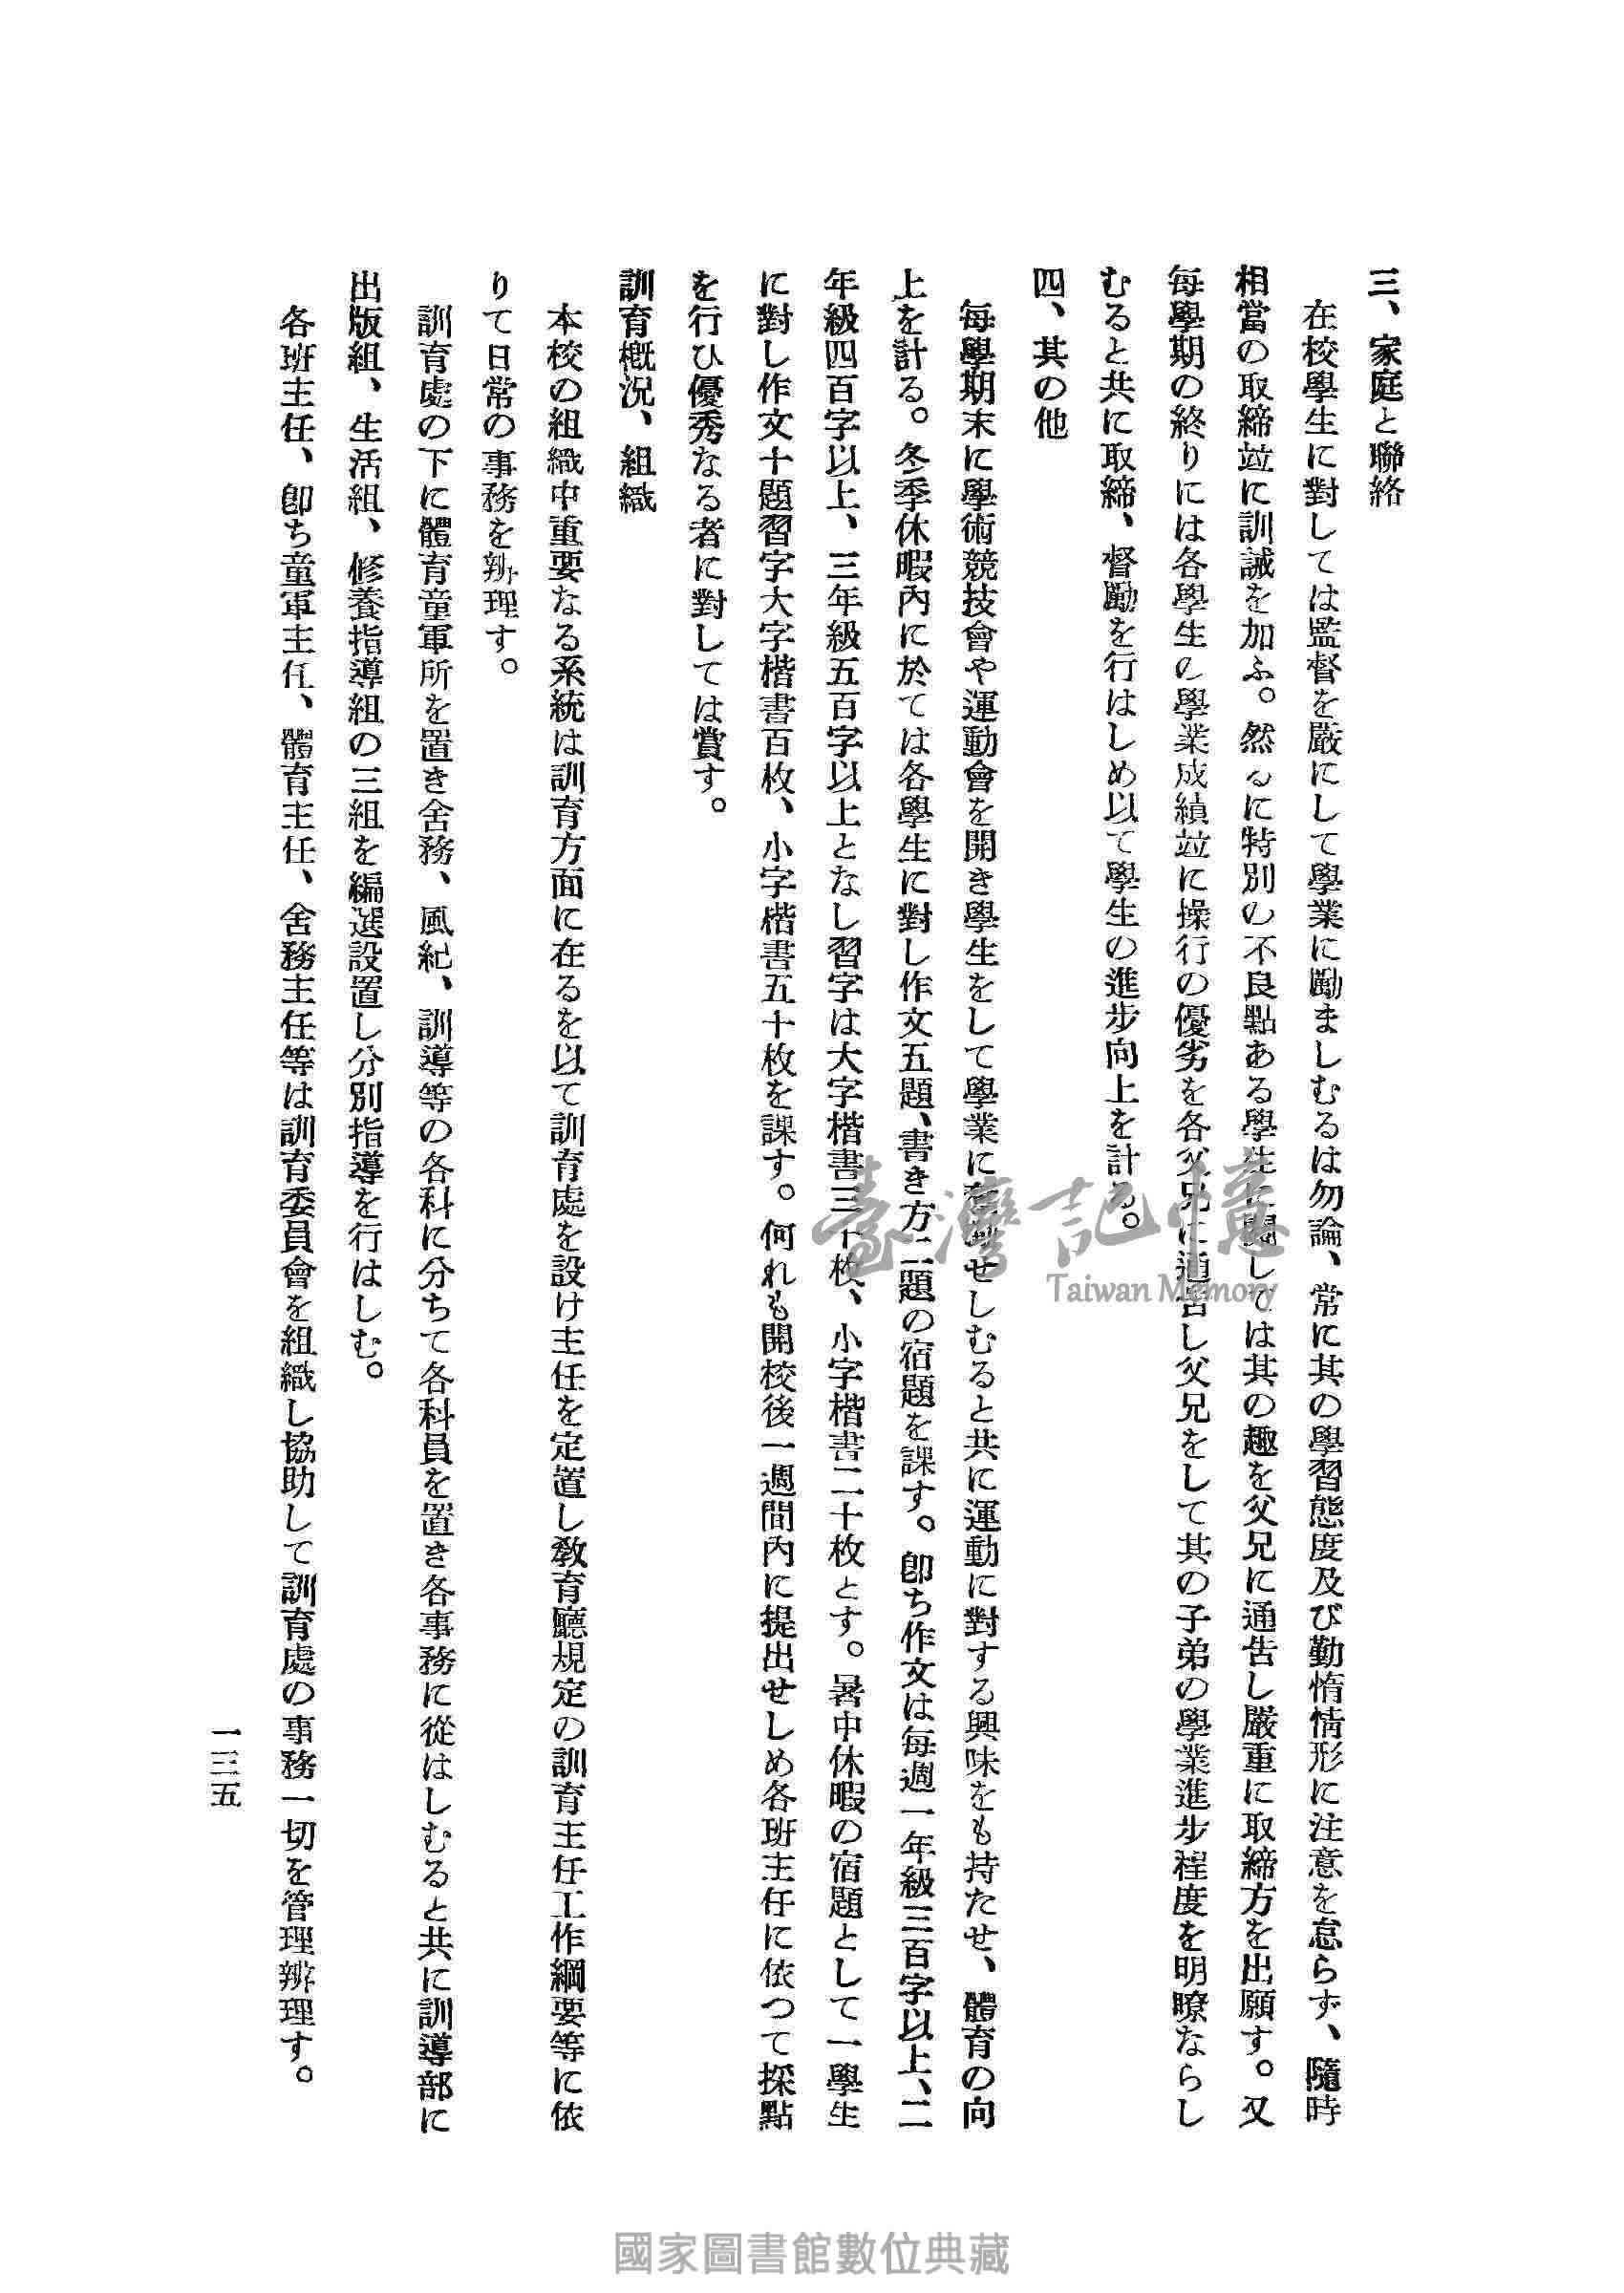 三、家庭と聯絡
在校學生に對しては監督を嚴にして學業に勵ましむるは勿論、常に其の學習態度及び勤惰情形に注意を怠らず、隨時
相當の取締竝に訓誡を加ふ。然るに特別の不良點ある學生に關しては其の趣を父兄に通告し嚴重に取締方を出願す。又
每學期の終りには各學生の學業成績竝に操行の優劣を各父兄に通告し父兄をして其の子弟の學業進步程度を明瞭ならし
むると共に取締、督勵を行はしめ以て學生の進步向上を計る。
四、其の他
每學期末に學術競技會や運動會を開き學生をして學業に せしむると共に運動に對する興味をも持たせ、體育の向
上を計る。冬季休暇內に於ては各學生に對し作文五題、書き方二題の宿題を課す。卽ち作文は每週一年級三百字以上、二
年級四百字以上、三年級五百字以上となし習字は大字楷書三十枚、小字楷書二十枚とす。暑中休暇の宿題として一學生
に對し作文十題習字大字楷書百枚、小字楷書五十枚を課す。何れも開校後一週間內に提出せしめ各班主任に依つて採點
を行ひ優秀なる者に對しては賞す。
訓育槪況、組織
本校の組織中重要なる系統は訓育方面に在るを以て訓育處を設け主任を定置し敎育廳規定の訓育主任工作綱要等に依
りて日常の事務を辦理す。
訓育處の下に體育童軍所を置き舍務、風紀、訓導等の各科に分ちて各科員を置き各事務に從はしむると共に訓導部に
出版組、生活組、修養指導組の三組を編選設置し分別指導を行はしむ。
各班主任、卽ち童軍主任、體育主任、舍務主任等は訓育委員會を組織し協助して訓育處の事務一切を管理辦理す。
一三五
臺灣記憶
Taiwan Memory
國家圖書館數位典藏